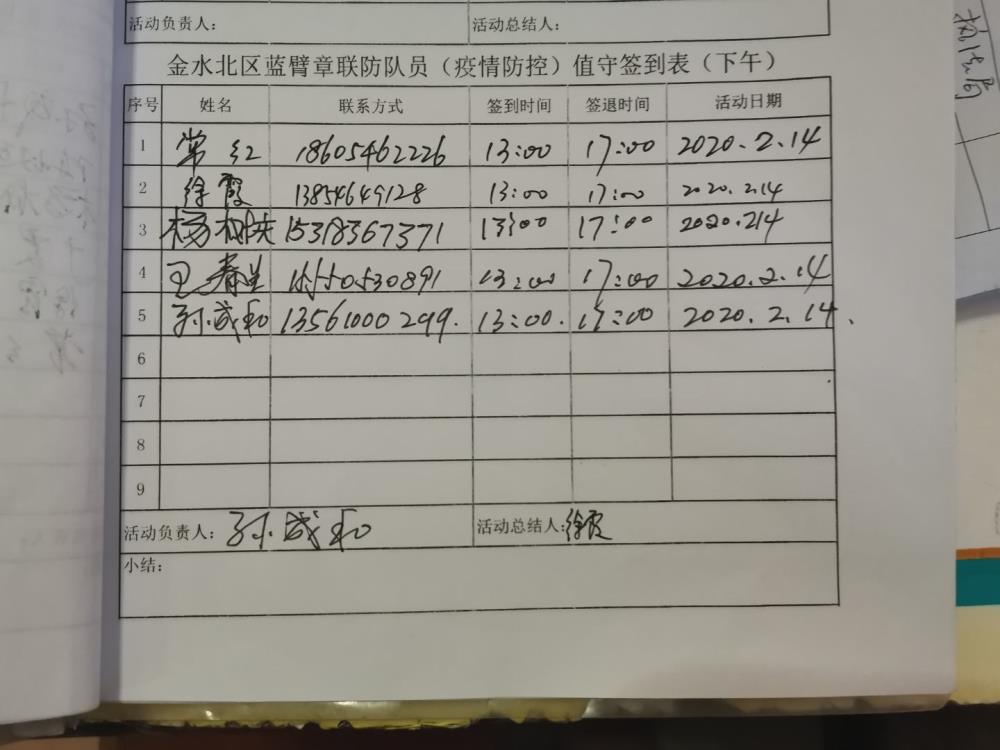 活动负责人： 活动总结人：
金水北区蓝臂章联防队员（疫情防控）值守签到表（下午）
序号 姓名 联系方式 签到时间 签退时间 活动日期
1 常红 18605462226 13:00 17:00 2020.2.14
2 徐霞 13854649128 13:00 17:00 2020.2.14
3 杨 15318367371 13:00 17:00 2020.214
4 王春生 13:00 17:00 2020.2.14
5 孙成和 13561000299. 13:00. 17:00 2020.2.14.
6
7
8
9
活动负责人：孙成和 活动总结人：徐霞
小结：